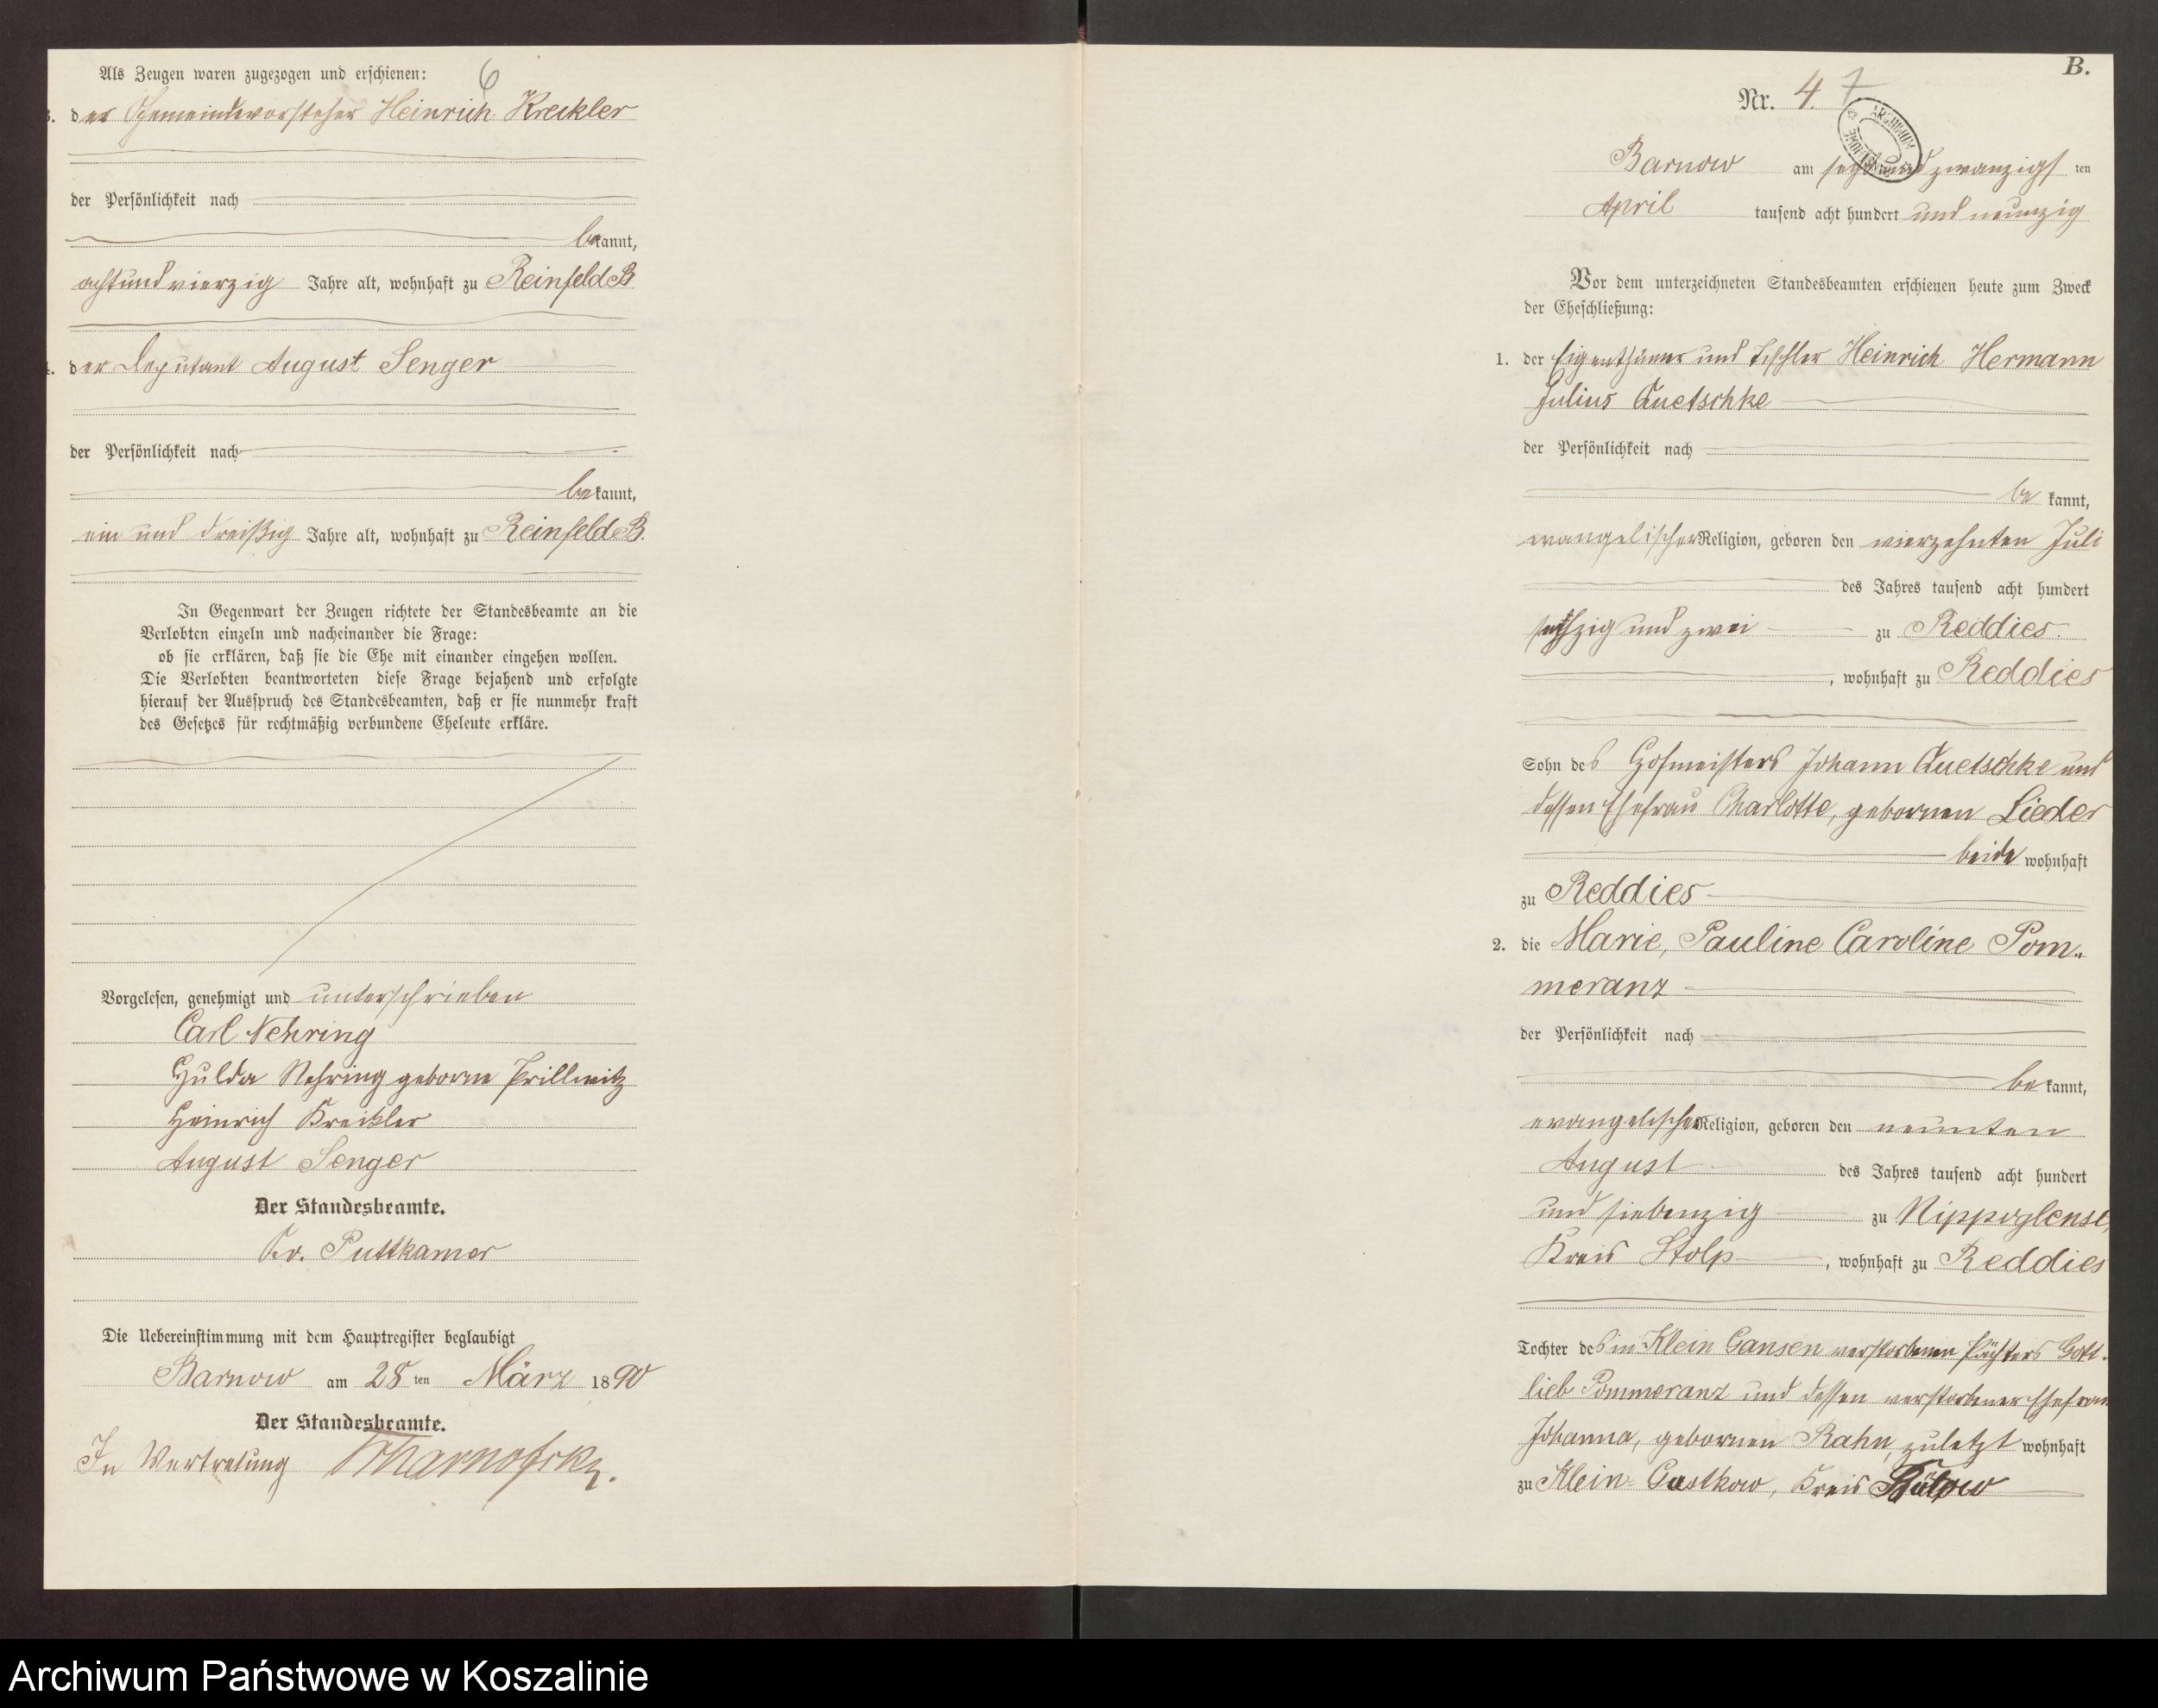 Als Zeugen waren zugezogen und erschienen:
6
3. der Gemeindevorsteher Heinrich Kreckler
der Persönlichkeit nach
bekannt,
achtundvierzig Jahre alt, wohnhaft zu Reinfeld B
4. der Deputant August Senger
der Persönlichkeit nach
bekannt,
ein und dreißig Jahre alt, wohnhaft zu Reinfeld B.
In Gegenwart der Zeugen richtete der Standesbeamte an die
Verlobten einzeln und nacheinander die Frage:
ob sie erklären, daß sie die Ehe mit einander eingehen wollen.
Die Verlobten beantworteten diese Frage bejahend und erfolgte
hierauf der Ausspruch des Standesbeamten, daß er sie nunmehr kraft
des Gesetzes für rechtmäßig verbundene Eheleute erkläre.
Vorgelesen, genehmigt und unterschrieben
Carl Nehring
Hulda Nehring geborne Prillwitz
Heinrich Kreckler
August Senger
Der Standesbeamte.
v. Puttkamer
Die Uebereinstimmung mit dem Hauptregister beglaubigt
Barnow am 28 ten März 1890
Der Standesbeamte.
In Vertretung
B.
Nr. 4. 7
ARCHIWUM
Barnow am sechsundzwanzigsten
April tausend acht hundert und neunzig
Vor dem unterzeichneten Standesbeamten erschienen heute zum Zweck
der Eheschließung:
1. der Eigenthümer und Tischler Heinrich Hermann
Julius Quetschke
der Persönlichkeit nach
be kannt,
evangelischer Religion, geboren den vierzehnten Juli
des Jahres tausend acht hundert
sechzig und zwei zu Reddies
, wohnhaft zu Reddies
Sohn des Hofmeisters Johann Quetschke und
dessen Ehefrau Charlotte, gebornen Lieder
beide wohnhaft
zu Reddies
2. die Marie, Pauline Caroline Pom-
meranz
der Persönlichkeit nach
bekannt,
evangelischer Religion, geboren den neunten
August des Jahres tausend acht hundert
und siebenzig zu Nippoglense,
Kreis Stolp, wohnhaft zu Reddies
Tochter des in Klein Gansen verstorbenen Pächters Gott-
lieb Pommeranz und dessen verstorbener Ehefrau
Johanna, gebornen Rahn, zuletzt wohnhaft
zu Klein-Gustkow, Kreis Bütow
Archiwum Państwowe w Koszalinie